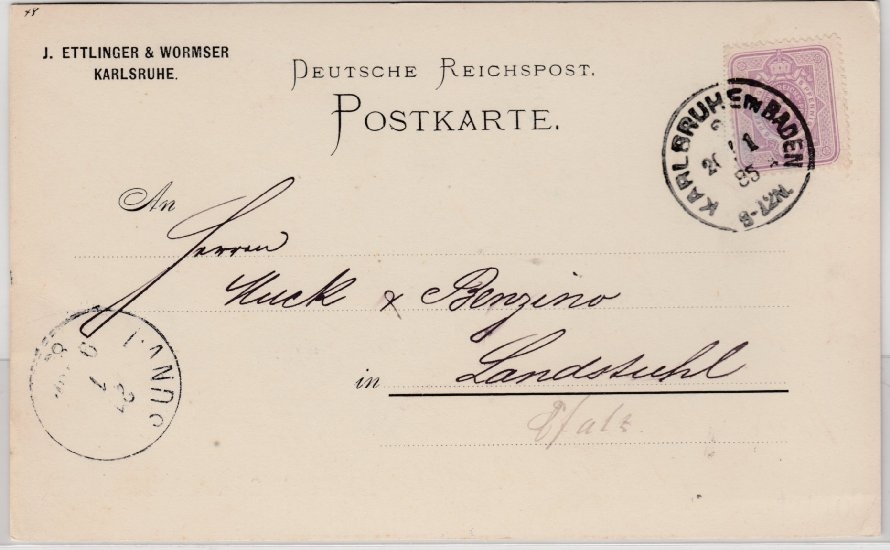 J. ETTLINGER & WORMSER
KARLSRUHE.
DEUTSCHE REICHSPOST.
POSTKARTE.
KARLSRUHE in BADEN
20 1
85
N.7-8
An
Herren
Muck & Benzino
in Landstuhl
Pfalz